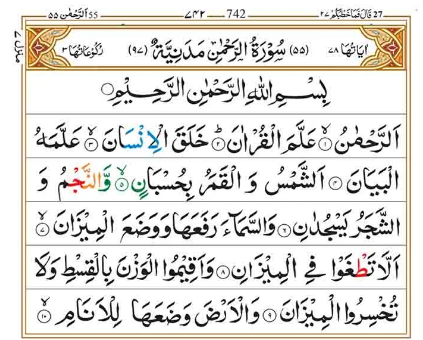 الرَّحْمٰن ٥٥ 55 ٧٤٢ 742 قَالَ فَمَا خَطْبُكُمْ ٢٧ 27
اٰيَاتُهَا ٧٨ (٥٥) سُوْرَةُ الرَّحْمٰنِ مَدَنِيَّةٌ (٩٧) رُكُوْعَاتُهَا ٣
منزل ٧
بِسْمِ اللهِ الرَّحْمٰنِ الرَّحِيْمِ
اَلرَّحْمٰنُ ۙ‏﴿۱﴾ عَلَّمَ الْقُرْاٰنَ ؕ‏﴿۲﴾ خَلَقَ الْاِنْسَانَ ۙ‏﴿۳﴾ عَلَّمَهُ
الْبَيَانَ ‏﴿۴﴾ اَلشَّمْسُ وَ الْقَمَرُ بِحُسْبَانٍ ۪‏﴿۵﴾ وَّالنَّجْمُ وَ
الشَّجَرُ يَسْجُدٰنِ ‏﴿۶﴾ وَالسَّمَآءَ رَفَعَهَا وَوَضَعَ الْمِيْزَانَ ۙ‏﴿۷﴾
اَلَّا تَطْغَوْا فِى الْمِيْزَانِ ‏﴿۸﴾ وَاَقِيْمُوا الْوَزْنَ بِالْقِسْطِ وَلَا
تُخْسِرُوا الْمِيْزَانَ ‏﴿۹﴾ وَالْاَرْضَ وَضَعَهَا لِلْاَنَامِ ۙ‏﴿۱۰﴾